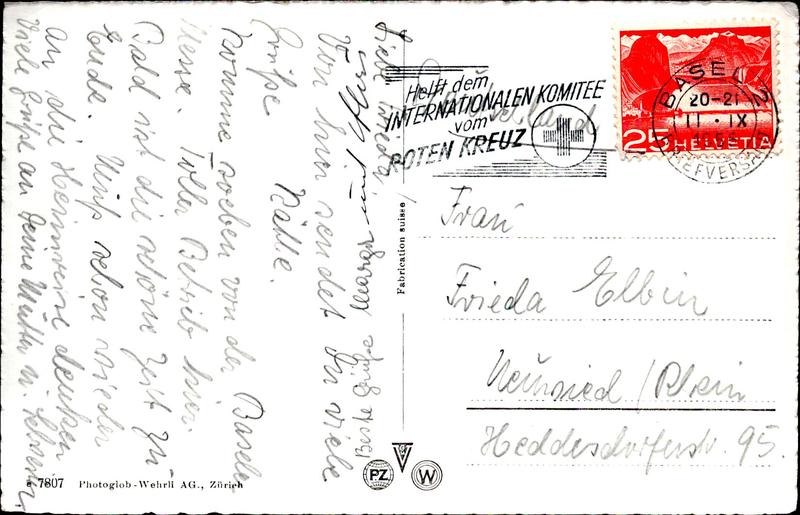 Liebe Frieda!
Von hier sendet Dir viele
Grüße
Käthe.
Komme soeben von der Basler
Messe. Toller Betrieb hier.
Bald ist die schöne Zeit zu
Ende. Muß schon wieder
an die Heimreise denken
Viele Grüße an Deine Mutter u.
Beste Grüße
und
Helft dem
INTERNATIONALEN KOMITEE
vom
ROTEN KREUZ
BASEL 2
20-21
11·IX
BRIEFVERSAND
25 HELVETIA
Fabrication suisse
Frau
Frieda Elbin
Neuwied/Rhein
Heddesdorferstr. 95.
7807 Photoglob-Wehrli AG., Zürich
PZ
W